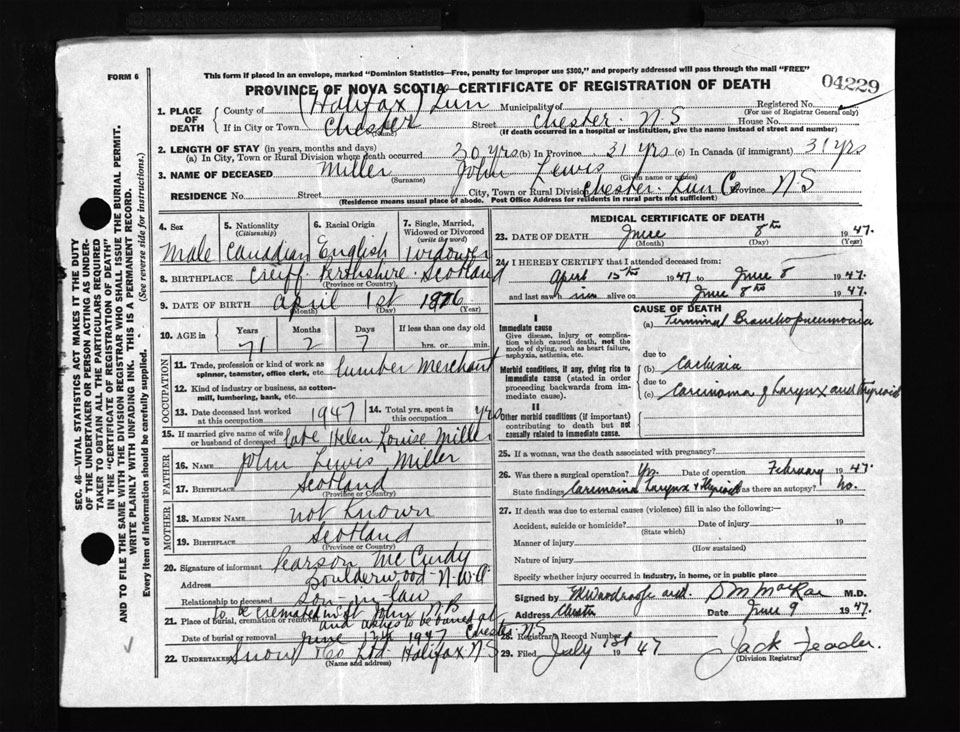 FORM 6
This form if placed in an envelope, marked "Dominion Statistics—Free, penalty for improper use $300," and properly addressed will pass through the mail "FREE"
PROVINCE OF NOVA SCOTIA—CERTIFICATE OF REGISTRATION OF DEATH
04229
1. PLACE OF DEATH
County of (Halifax) Lun Municipality of Registered No.
(For use of Registrar General only)
If in City or Town Chester Street Chester N.S House No.
(Name) (If death occurred in a hospital or institution, give the name instead of street and number)
2. LENGTH OF STAY (in years, months and days)
(a) In City, Town or Rural Division where death occurred 30 yrs (b) In Province 31 yrs (c) In Canada (if immigrant) 31 yrs
3. NAME OF DECEASED Miller John Lewis
(Surname) (Given name or names)
RESIDENCE No. Street City, Town or Rural Division Chester Lun Co Province N S
(Residence means usual place of abode. Post Office Address for residents in rural parts not sufficient)
4. Sex 5. Nationality (Citizenship) 6. Racial Origin 7. Single, Married, Widowed or Divorced (write the word)
Male Canadian English Widower
8. BIRTHPLACE Crieff Perthshire Scotland
(Province or Country)
9. DATE OF BIRTH April 1st 1876
(Month) (Day) (Year)
10. AGE in Years Months Days If less than one day old
71 2 7 hrs. or min.
OCCUPATION
11. Trade, profession or kind of work as spinner, teamster, office clerk, etc. lumber Merchant
12. Kind of industry or business, as cotton-mill, lumbering, bank, etc.
13. Date deceased last worked at this occupation 1947 14. Total yrs. spent in this occupation yrs
15. If married give name of wife or husband of deceased late Helen Louise Miller
FATHER
16. NAME John Lewis Miller
17. BIRTHPLACE Scotland
(Province or Country)
MOTHER
18. MAIDEN NAME not Known
19. BIRTHPLACE Scotland
(Province or Country)
20. Signature of informant Pearson McCurdy
Address Boulderwood N.W.A
Relationship to deceased son-in-law
21. Place of burial, cremation or removal To be cremated in St John N.B and ashes to be buried at Chester NS
Date of burial or removal June 12th 1947
22. UNDERTAKER Snow & Co Ltd. Halifax NS
(Name and address)
MEDICAL CERTIFICATE OF DEATH
23. DATE OF DEATH June 8th 1947.
(Month) (Day) (Year)
24. I HEREBY CERTIFY that I attended deceased from:
April 15th 1947 to June 8 1947.
and last saw him alive on June 8th 1947.
CAUSE OF DEATH
I
Immediate cause
Give disease, injury or complication which caused death, not the mode of dying, such as heart failure, asphyxia, asthenia, etc.
(a) Terminal Bronchopneumonia
due to
Morbid conditions, if any, giving rise to immediate cause (stated in order proceeding backwards from immediate cause).
(b) Cachexia
due to
(c) Carcinoma of Larynx and Thyroid
II
Other morbid conditions (if important) contributing to death but not causally related to immediate cause.
25. If a woman, was the death associated with pregnancy?
26. Was there a surgical operation? Yes. Date of operation February 1947.
State findings Carcinoma Larynx & Thyroid Was there an autopsy? No.
27. If death was due to external causes (violence) fill in also the following:—
Accident, suicide or homicide? Date of injury 19
(State which)
Manner of injury
(How sustained)
Nature of injury
Specify whether injury occurred in industry, in home, or in public place
Signed by and D M MacRae M.D.
Address Chester Date June 9 1947.
28. Registrar's Record Number
29. Filed July 1st 1947 Jack
(Division Registrar)
SEC. 46—VITAL STATISTICS ACT MAKES IT THE DUTY
OF THE UNDERTAKER OR PERSON ACTING AS UNDER-
TAKER TO OBTAIN ALL THE PARTICULARS REQUIRED
IN THE "CERTIFICATE OF REGISTRATION OF DEATH"
AND TO FILE THE SAME WITH THE DIVISION REGISTRAR WHO SHALL ISSUE THE BURIAL PERMIT.
WRITE PLAINLY WITH UNFADING INK. THIS IS A PERMANENT RECORD.
Every item of information should be carefully supplied. (See reverse side for instructions.)